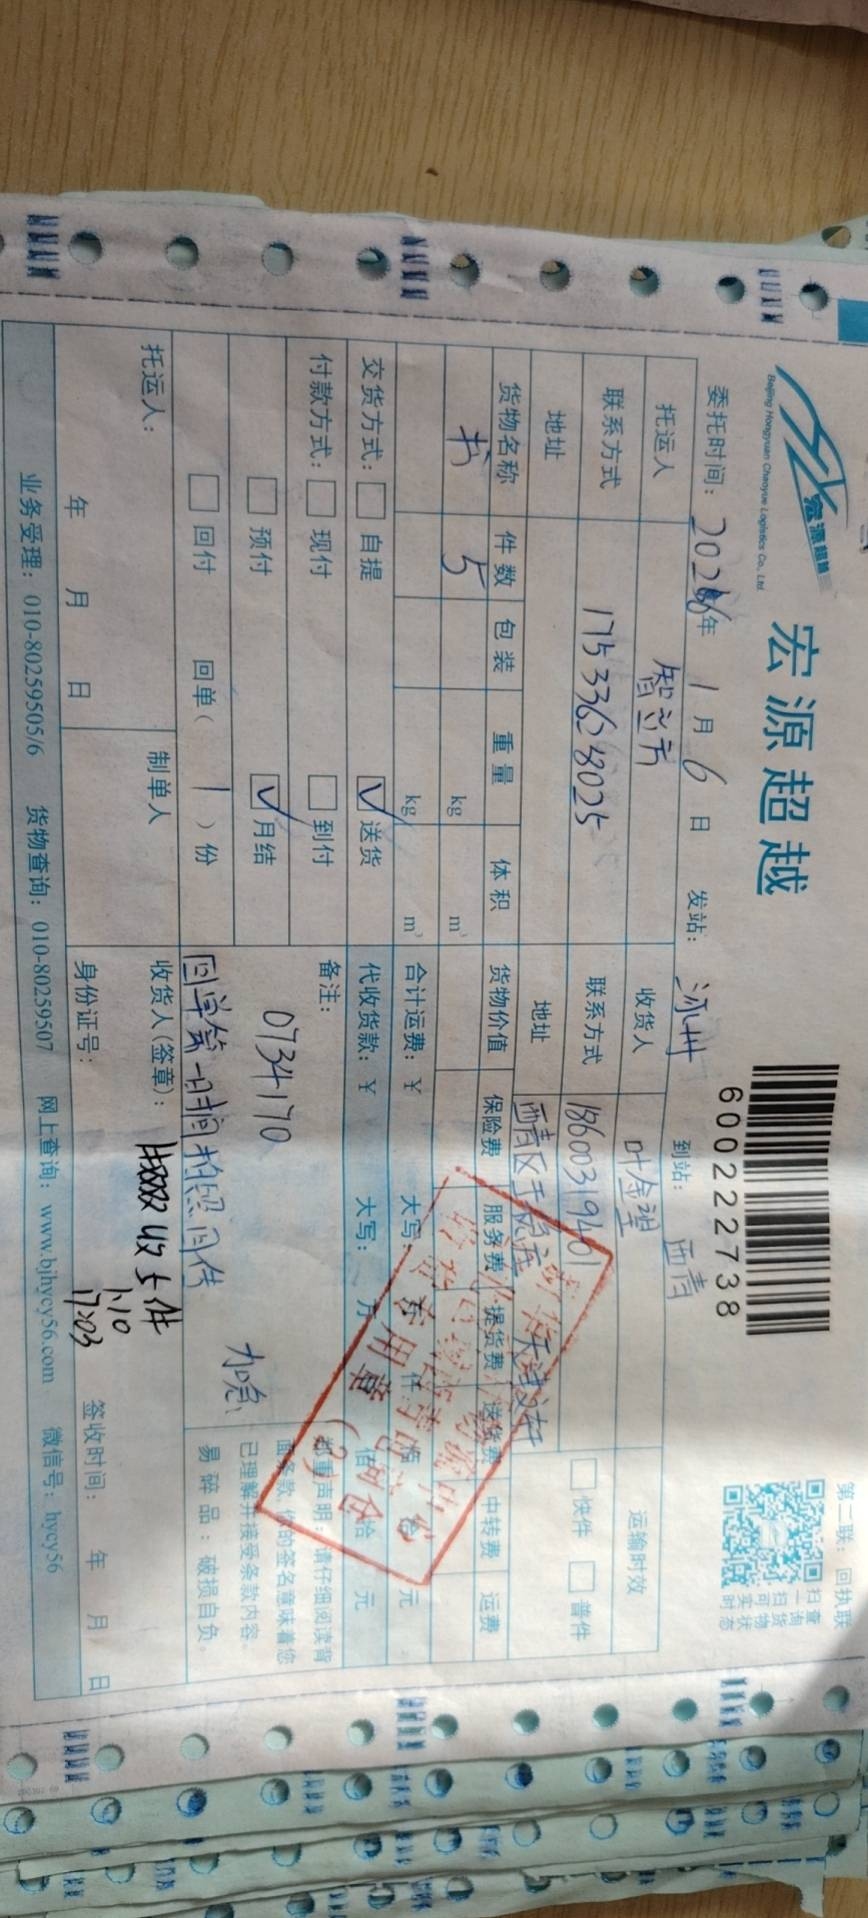 第二联：回执联
宏源超越
Beijing Hongyuan Chaoyue Logistics Co., Ltd
宏源超越
6002222738
扫一扫
查询货物
可实时状态
委托时间：2026年1月6日 发站：涿州 到站：西青
托运人 智立方 收货人 叶金望 运输时效
联系方式 17533628025 联系方式 18600319401 快件 普件
地址 地址 西青区王稳庄
货物名称 件数 包装 重量 体积 货物价值 保险费 服务费 提货费 送货费 中转费 运费
书 5 kg m³
kg m³ 合计运费：¥ 大写： 万 仟 佰 拾 元
交货方式： 自提 ✓送货 代收货款：¥ 大写： 万 仟 佰 拾 元
付款方式： 现付 到付 备注：
预付 ✓月结 0734170
回付 回单（1）份 回单第一时间拍照回传 加急
郑重声明：请仔细阅读背面条款，您的签名意味着您
已理解并接受条款内容。
易碎品：破损自负。
托运人： 制单人 收货人(签章)： 收5件
1.10
17:03
年 月 日 身份证号： 签收时间： 年 月 日
业务受理：010-80259505/6 货物查询：010-80259507 网上查询：www.bjhycy56.com 微信号：hycy56